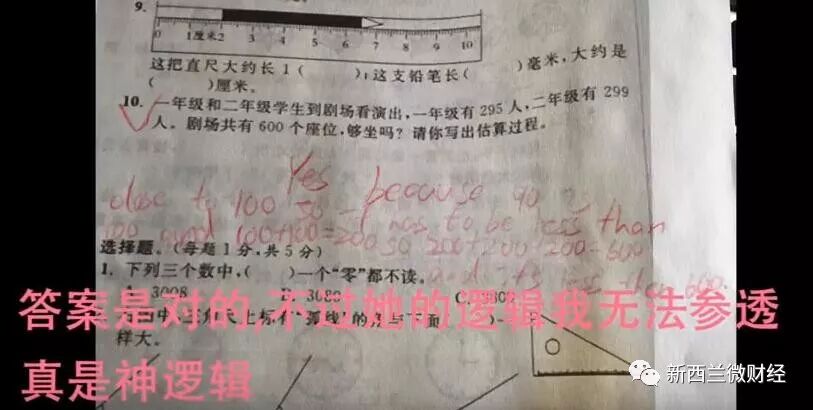 9.
0 1厘米2 3 4 5 6 7 8 9 10
这把直尺大约长 1 ( );这支铅笔长( )毫米,大约是
( )厘米。
10. 一年级和二年级学生到剧场看演出,一年级有 295 人,二年级有 299
人。剧场共有 600 个座位,够坐吗?请你写出估算过程。
Yes because 90 is
close to 100 so it has to be less than
100 and 100+100=200 so 200+200+200=600
and it's less than 600.
选择题。(每题 1 分,共 5 分)
1. 下列三个数中,( )一个“零”都不读。
A. 3008 B. 3080 C.
答案是对的,不过她的逻辑我无法参透
样大。
真是神逻辑
新西兰微财经